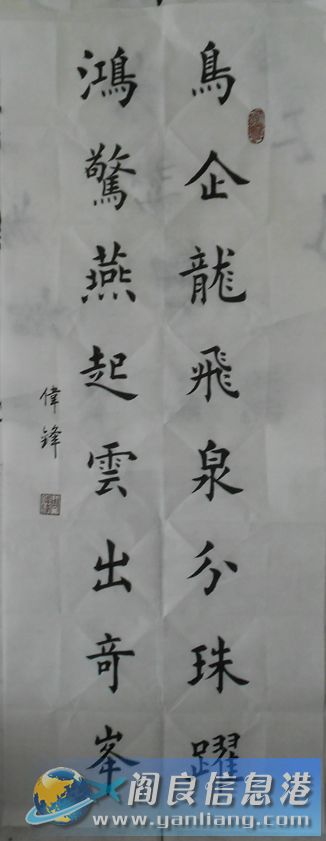 鳥企龍飛泉分珠躍
鴻驚燕起雲出奇峯
偉鋒
阎良信息港
www.yanliang.com